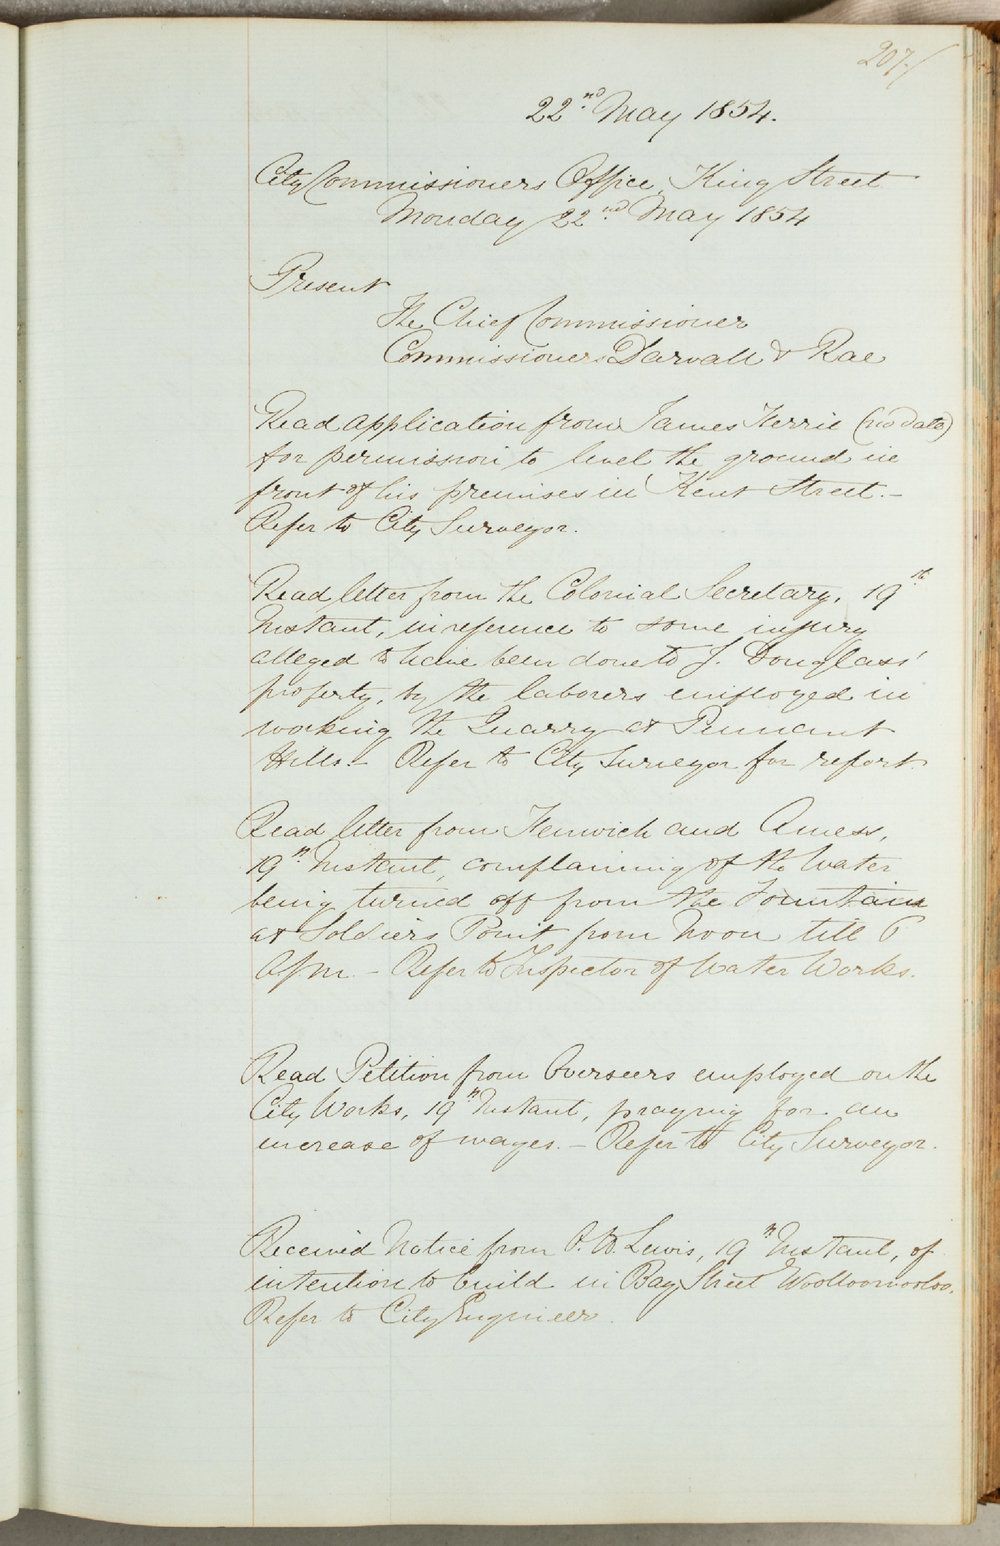 207/
22nd May 1854.
City Commissioners Office, King Street
Monday 22nd May 1854
Present
The Chief Commissioner
Commissioners Darvall & Rae
Read application from James Kerrie (no date)
for permission to level the ground in
front of his premises in Kent Street.-
Refer to City Surveyor.
Read letter from the Colonial Secretary, 19th
Instant, in reference to some injury
alleged to have been done to J. Douglass'
property, by the laborers employed in
working the Quarry at Pennant
Hills.- Refer to City Surveyor for report.
Read letter from Fenwick and Amess,
19th Instant, complaining of the Water
being turned off from the Fountain
at Soldiers Point from Noon till 6
A/m.- Refer to Inspector of Water Works.
Read Petition from Overseers employed on the
City Works, 19th Instant, praying for an
increase of wages.- Refer to City Surveyor.
Received Notice from O. W. Lewis, 19th Instant, of
intention to build in Bay Street Woolloomooloo.
Refer to City Engineer.